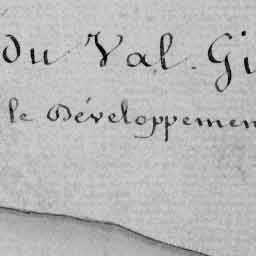 Du Val. Gi
le Développemen